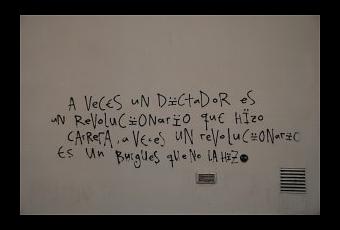 A VECES UN DiCtaDoR eS
uN ReVoluCiONariO que Hizo
CARReRA, a VECes UN ReVoluCiONario
ES UN BURGUES QUE NO LA HiZO